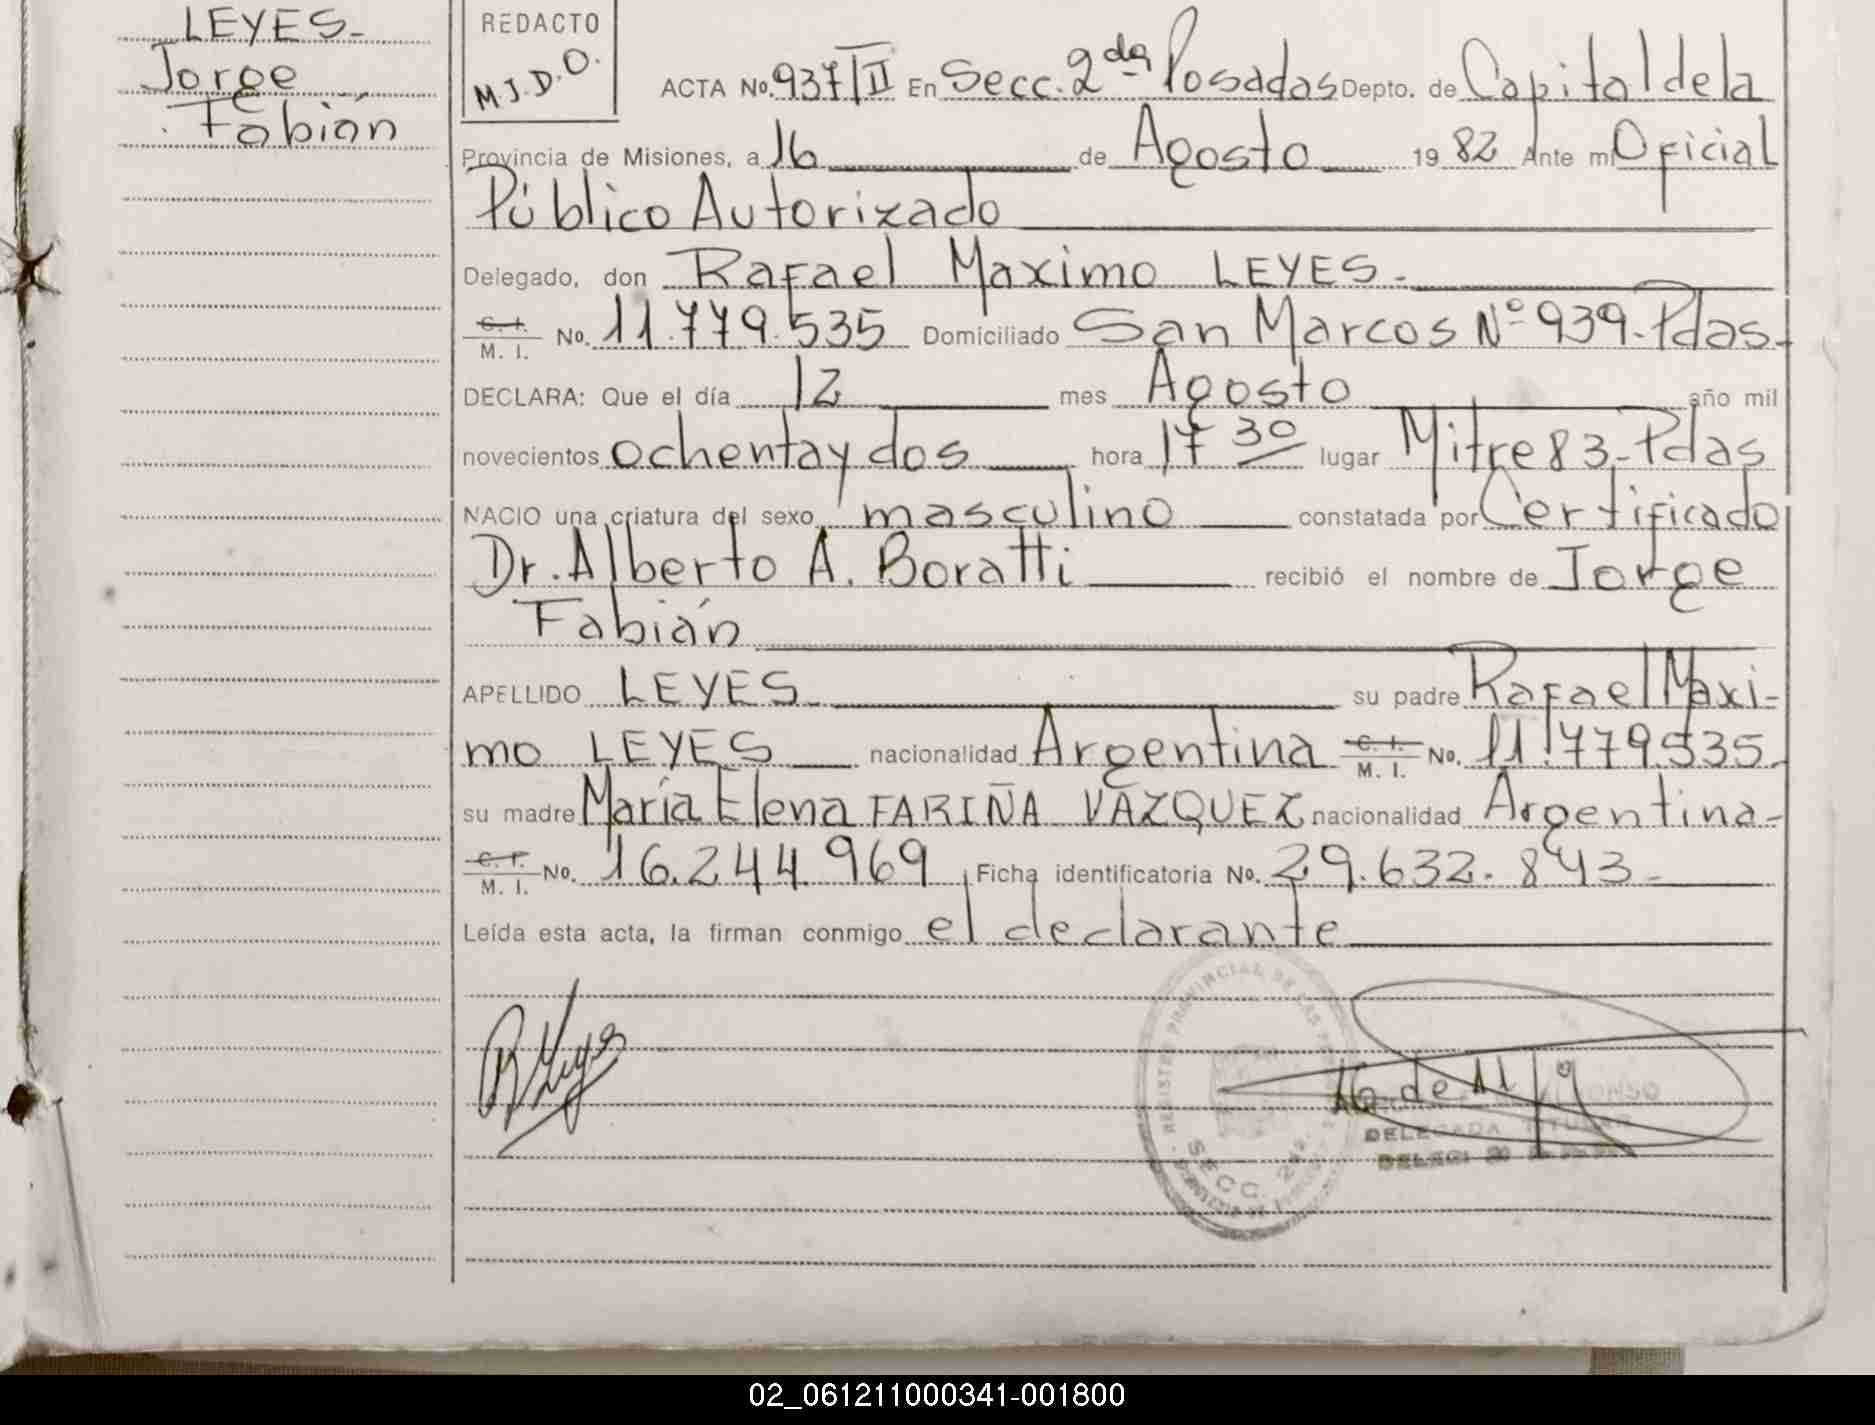 LEYES-
Jorge
Fabián
REDACTO
M.J.D.O.
ACTA No. 937/II En Secc. 2da Posadas Depto. de Capital de la
Provincia de Misiones, a 16 de Agosto 1982 Ante mí Oficial
Público Autorizado
Delegado, don Rafael Maximo LEYES-
C. I. / M. I. No. 11.779.535 Domiciliado San Marcos Nº 939-Pdas-
DECLARA: Que el día 12 mes Agosto año mil
novecientos ochenta y dos hora 17 30 lugar Mitre 83-Pdas
NACIO una criatura del sexo masculino constatada por Certificado
Dr. Alberto A. Boratti recibió el nombre de Jorge
Fabián
APELLIDO LEYES- su padre Rafael Maxi-
mo LEYES nacionalidad Argentina C. I. / M. I. No. 11.779.535-
su madre María Elena FARIÑA VÁZQUEZ nacionalidad Argentina-
C. I. / M. I. No. 16.244.969 Ficha identificatoria No. 29.632.843-
Leída esta acta, la firman conmigo el declarante
R Leyes
REGISTRO PROVINCIAL DE LAS
SECC. 2da.
16 de 11
DELEGADA TITULAR
02_061211000341-001800